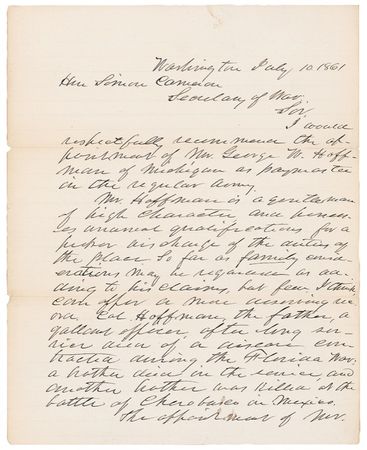 Washington July 10. 1861
Hon Simon Cameron
Secretary of War.
Sir.
I would
respectfully recommend the ap
pointment of Mr. George W. Hoff
man of Michigan as paymaster
in the regular Army.
Mr. Hoffman is a gentleman
of high character, and possess
es unusual qualifications for a
proper discharge of the duties of
the place. So far as family consid
erations may be regarded as ad
ding to his claims, but few I think
can offer a more deserving re
cord. Col. Hoffman, the father, a
gallant officer, after long ser
vice died of a disease con
tracted during the Florida War,
a brother died in the service and
another brother was killed at the
battle of Cherubusco in Mexico.
The appointment of Mr.